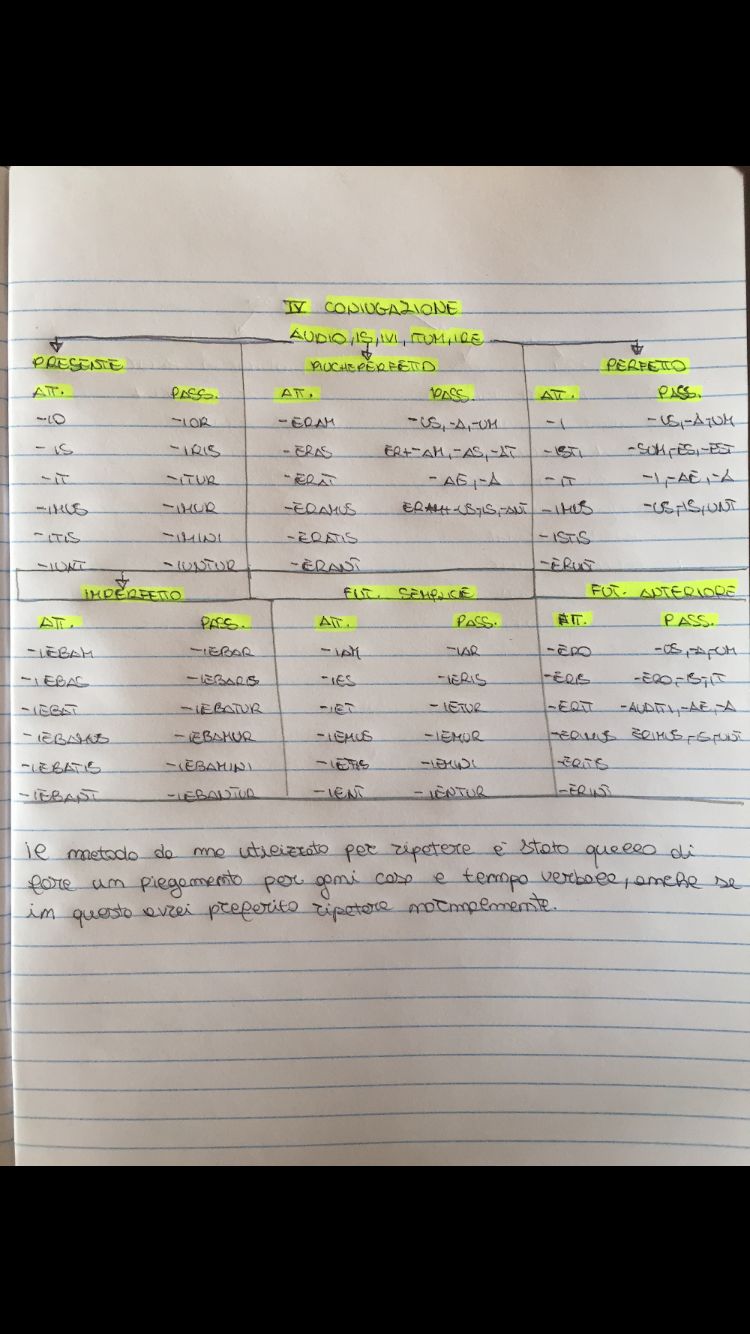 IV CONIUGAZIONE
AUDIO, IS, IVI, ITUM, IRE
PRESENTE PIUCHEPERFETTO PERFETTO
ATT. PASS. ATT. PASS. ATT. PASS.
-IO -IOR -ERAM -US, -A, -UM -I -US, -A, -UM
-IS -IRIS -ERAS ER+-AM, -AS, -AT -ISTI -SUM, -ES, -EST
-IT -ITUR -ERAT -AE, -A -IT -I, -AE, -A
-IMUS -IMUR -ERAMUS -IMUS
-ITIS -IMINI -ERATIS -ISTIS
-IUNT -IUNTUR -ERANT -ERUNT
IMPERFETTO FUT. SEMPLICE FUT. ANTERIORE
ATT. PASS. ATT. PASS. ATT. PASS.
-IEBAM -IEBAR -IAM -IAR -ERO -US, -A, -UM
-IEBAS -IEBARIS -IES -IERIS -ERIS -ERO, -IS, -IT
-IEBAT -IEBATUR -IET -IETUR -ERIT -AUDITI, -AE, -A
-IEBAMUS -IEBAMUR -IEMUS -IEMUR -ERIMUS
-IEBATIS -IEBAMINI -IETIS -IEMINI -ERITIS
-IEBANT -IEBANTUR -IENT -IENTUR -ERINT
il metodo da me utilizzato per ripetere è stato quello di
fare un piegamento per caso e tempo verbale, anche se
in questo avrei preferito ripetere normalmente.